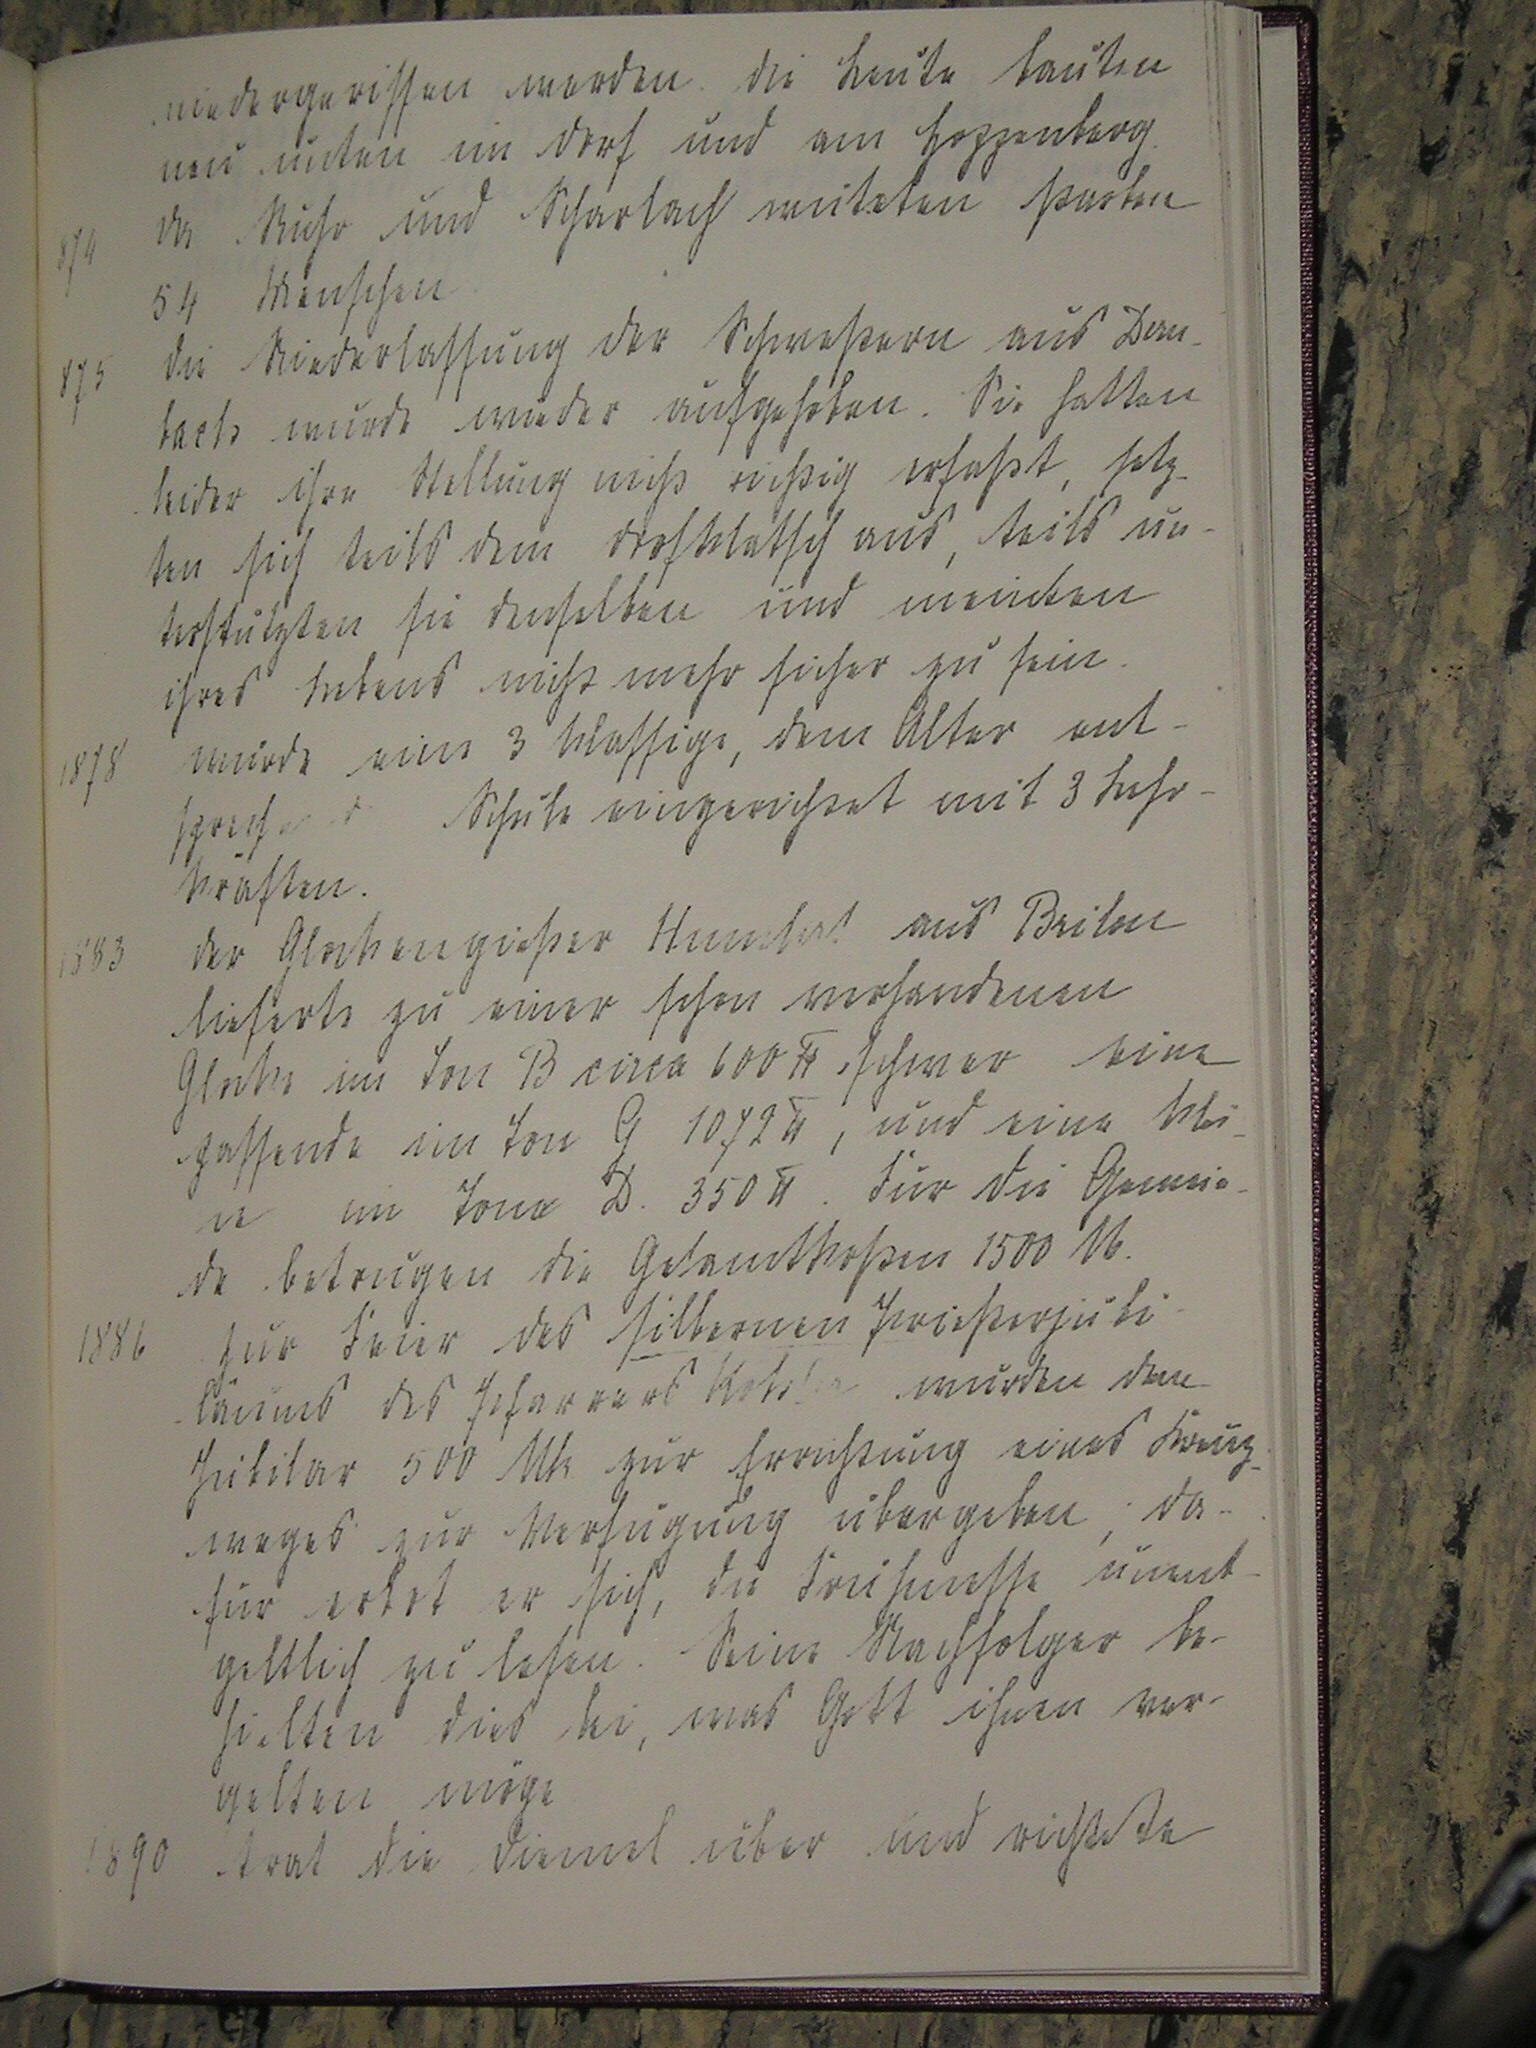 niedergerissen werden. Die Leute bauten
neu unten im Dorf und am Hoppenberg.
874 Da Ruhr und Scharlach wüteten starben
54 Menschen.
875 Die Niederlassung der Schwestern aus Dern-
bach wurde wieder aufgehoben. Sie hatten
leider ihre Stellung nicht richtig erfaßt, setz-
ten sich teils dem Dorfklatsch aus, teils un-
terstützten sie denselben und meinten
ihres Lebens nicht mehr sicher zu sein.
1878 wurde eine 3 klassige, dem Alter ent-
Schule eingerichtet mit 3 Lehr-
kräften.
1883 der Glockengießer Humbert aus Brilon
lieferte zu einer schon vorhandenen
Glocke im Ton B circa 600 ℔ schwer eine
passende im Ton G 1072 ℔, und eine klei-
ne im Tone D. 350 ℔. Für die Gemein-
de betrugen die Gesamtkosten 1500 M.
1886 Zur Feier des silbernen Priesterjubi-
läums des Pfarrers wurden dem
Jubilar 500 Mk zur Errichtung eines Kreuz-
weges zur Verfügung übergeben, da-
für erbot er sich, die Frühmesse unent-
geltlich zu lesen. Seine Nachfolger be-
hielten dies bei, was Gott ihnen ver-
gelten möge
1890 trat die Diemel über und richtete